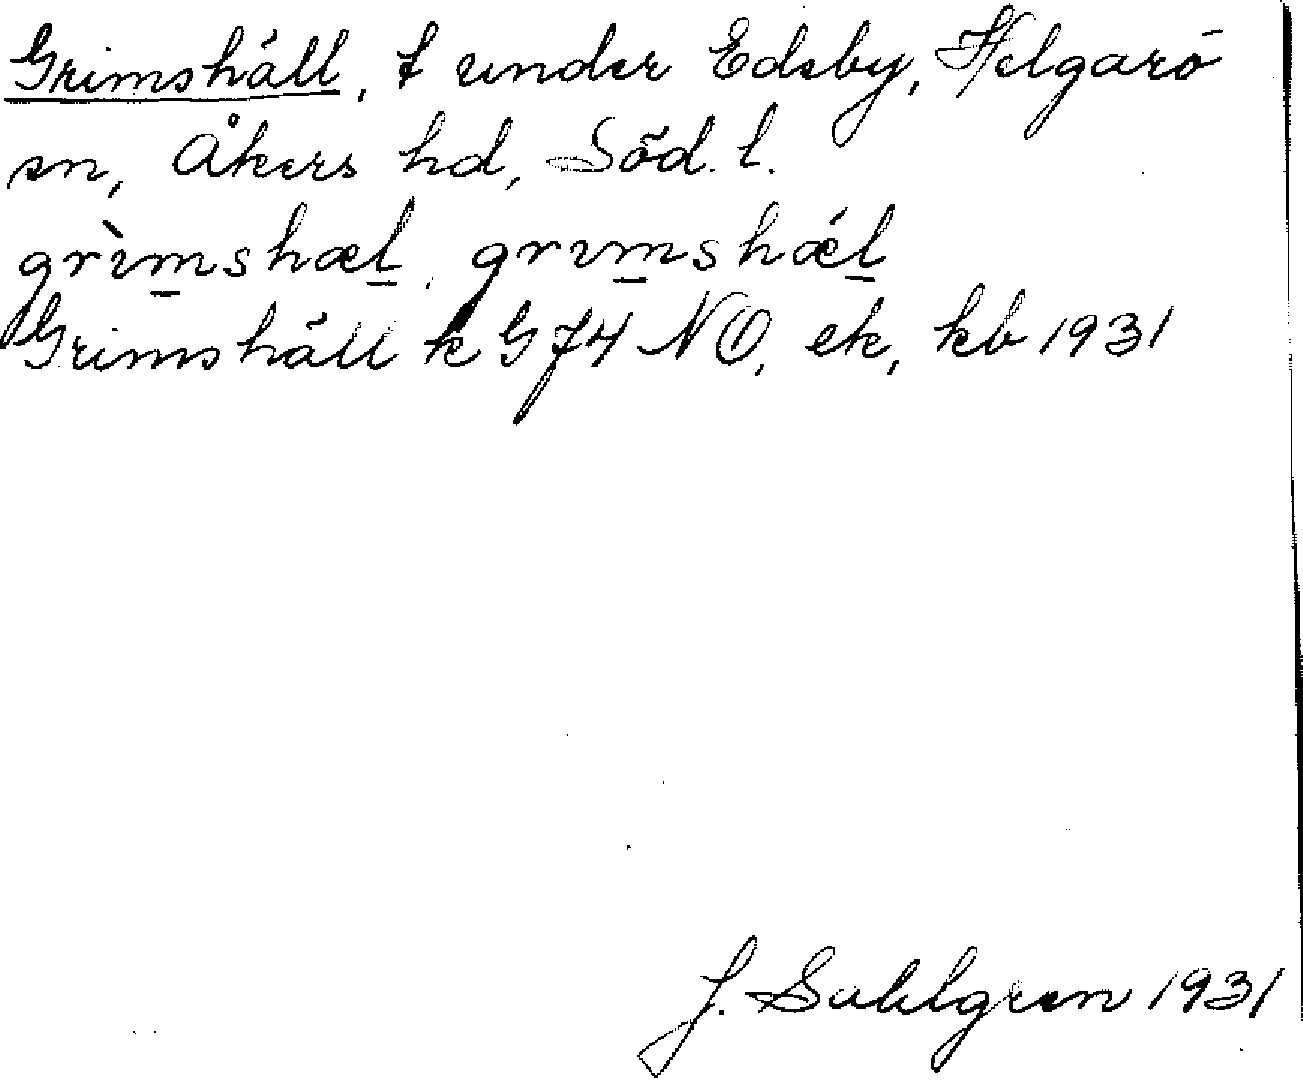 Grimshäll, t under Edeby, Helgarö
sn, Åkers hd, Söd. l.
grìmshæl, grımshǽl
Grimshäll k G 74 NO, ek, kb 1931
J. Sahlgren 1931